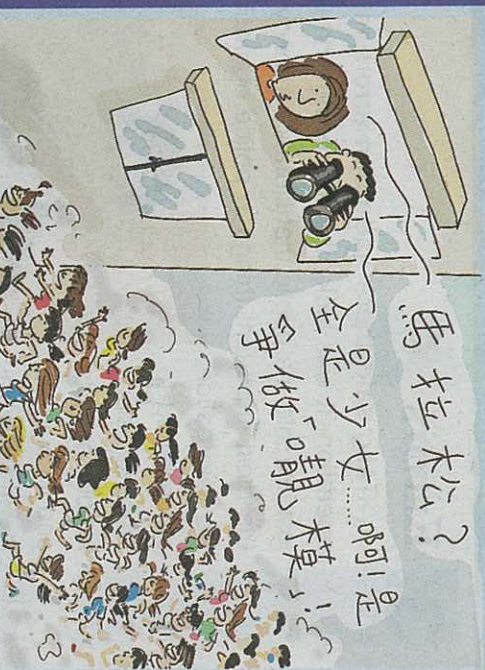 馬拉松?
全是少女……啊!是
爭做「𡃁模」!